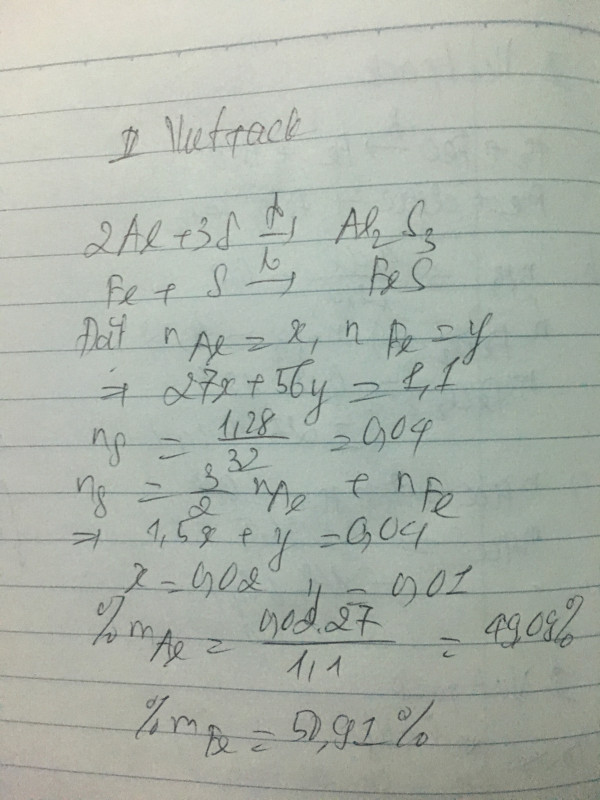 2Al + 3S t°→ Al₂S₃
Fe + S t°→ FeS
Đặt n Al = x, n Fe = y
⇒ 27x + 56y = 1,1
nS = 1,28/32 = 0,04
nS = 3/2 nAl + nFe
⇒ 1,5x + y = 0,04
x = 0,02 y = 0,01
%mAl = 0,02.27/1,1 = 49,09%
%mFe = 50,91%